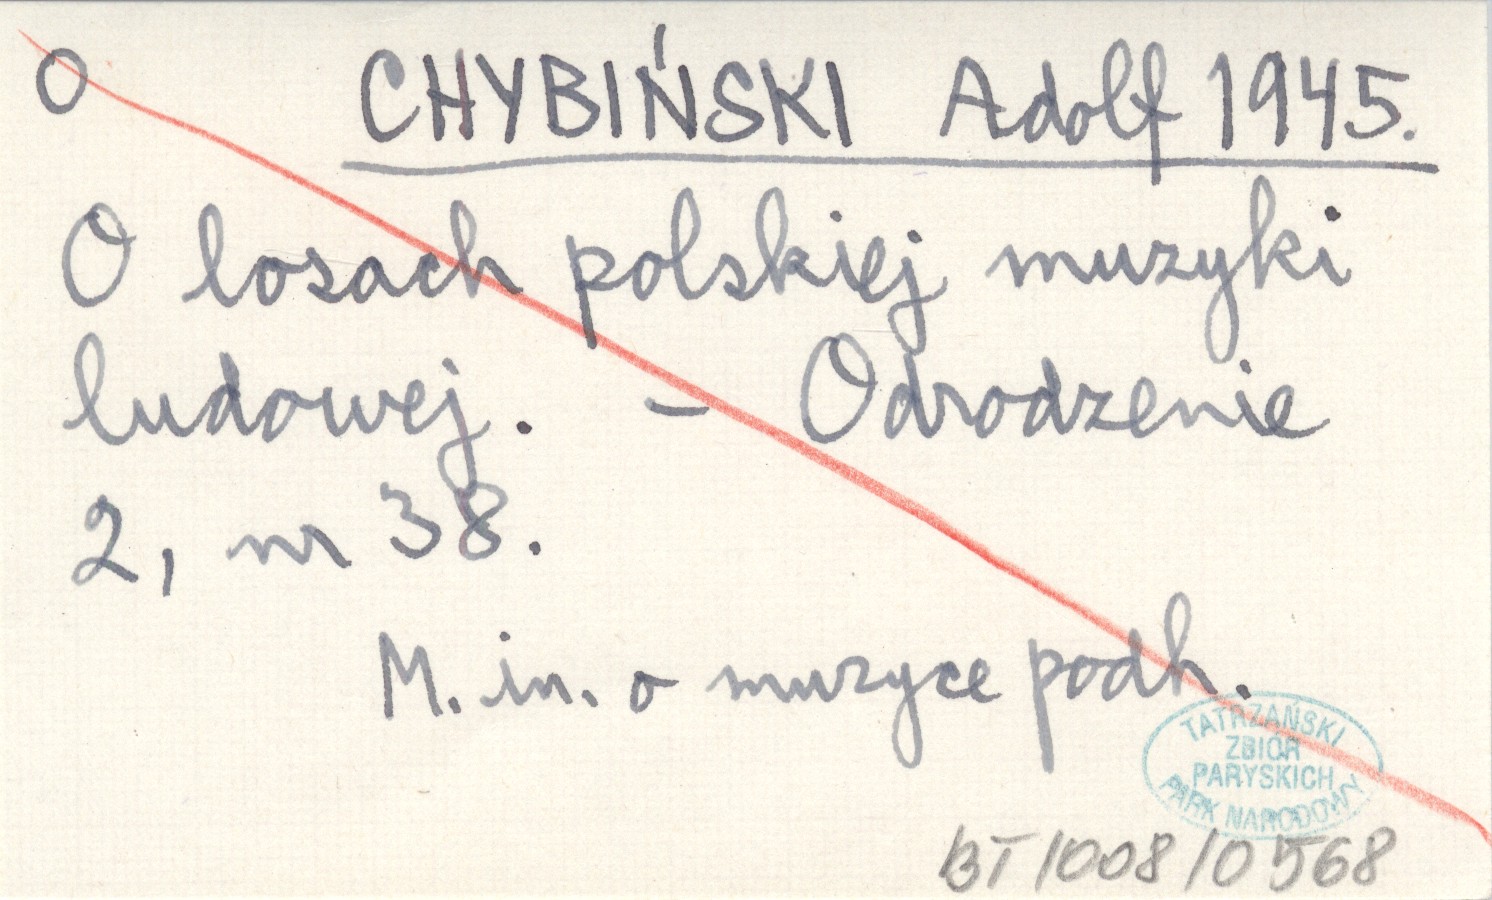 O CHYBIŃSKI Adolf 1945.
O losach polskiej muzyki
ludowej. – Odrodzenie
2, nr 38.
M. in. o muzyce podh.
TATRZAŃSKI
ZBIÓR
PARYSKICH
PARK NARODOWY
BT/008/0568